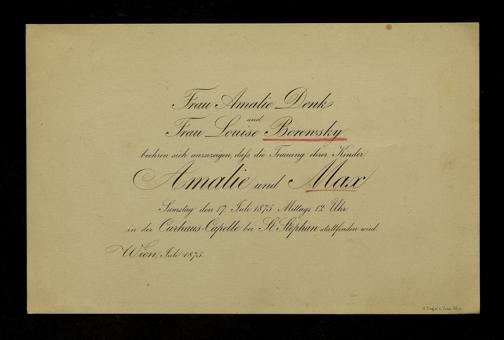 Frau Amalie Denk
und
Frau Louise Borowsky
beehren sich anzuzeigen, daß die Trauung ihrer Kinder
Amalie und Max
Samstag den 17. Juli 1875 Mittags 12 Uhr
in der Curhaus-Capelle bei St. Stephan stattfinden wird.
Wien, Juli 1875.